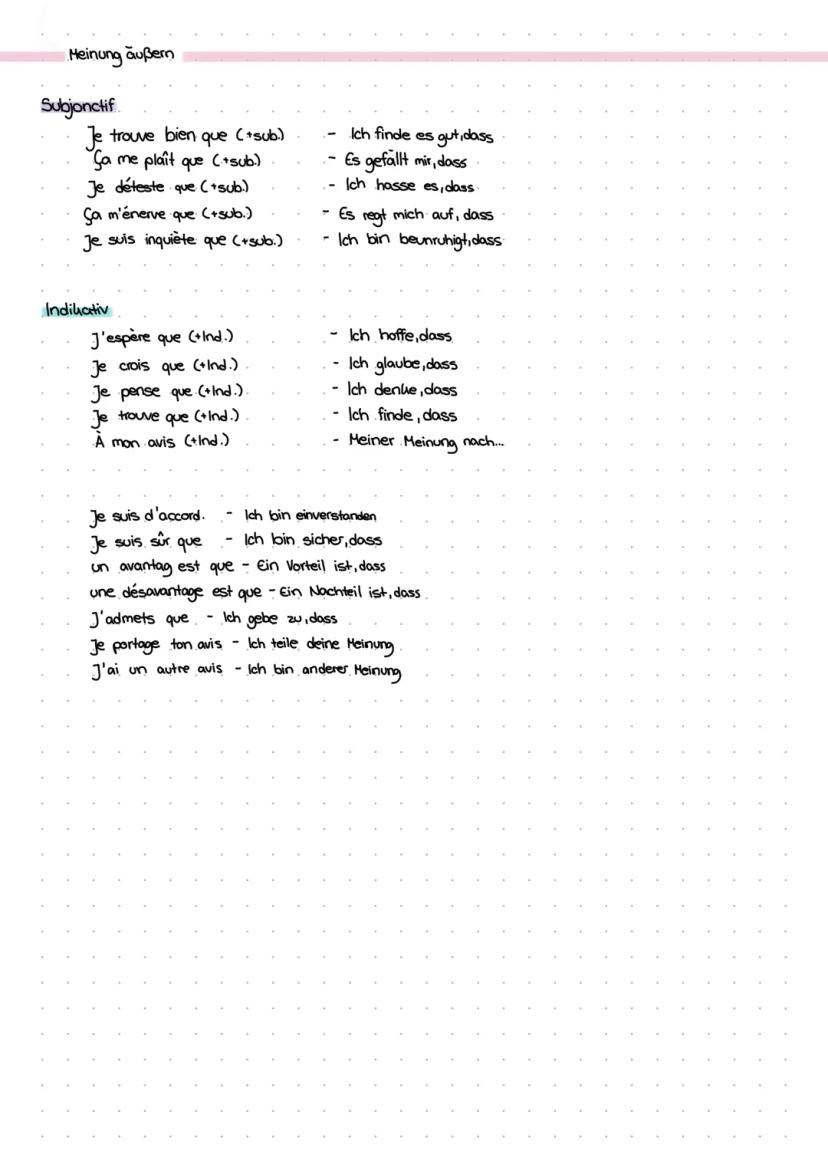 Meinung äußern
Subjonctif
Je trouve bien que (+sub.) - Ich finde es gut, dass
Ça me plaît que (+sub.) - Es gefällt mir, dass
Je déteste que (+sub.) - Ich hasse es, dass
Ça m'énerve que (+sub.) - Es regt mich auf, dass
Je suis inquiète que (+sub.) - Ich bin beunruhigt, dass
Indikativ
J'espère que (+Ind.) - Ich hoffe, dass
Je crois que (+Ind.) - Ich glaube, dass
Je pense que (+Ind.) - Ich denke, dass
Je trouve que (+Ind.) - Ich finde, dass
À mon avis (+Ind.) - Meiner Meinung nach...
Je suis d'accord. - Ich bin einverstanden
Je suis sûr que - Ich bin sicher, dass
un avantag est que - Ein Vorteil ist, dass
une désavantage est que - Ein Nachteil ist, dass
J'admets que - Ich gebe zu, dass
Je partage ton avis - Ich teile deine Meinung
J'ai un autre avis - Ich bin anderer Meinung